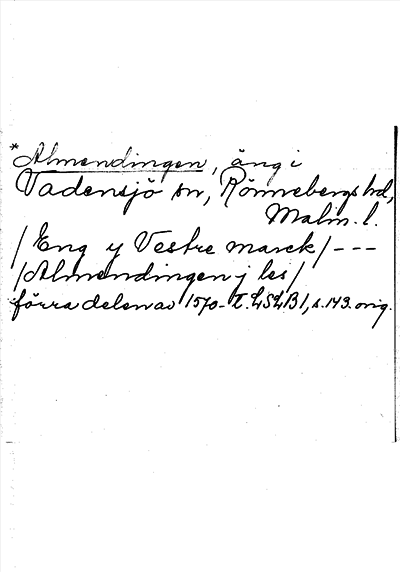 *Almendingen, äng i
Vadensjö sn, Rönnebergs hd,
Malm. l.
/Eng y Vestre marck/ ---
/Almendingen j les/
förra delen av 1570-t. LSLB 1, s. 143. orig.